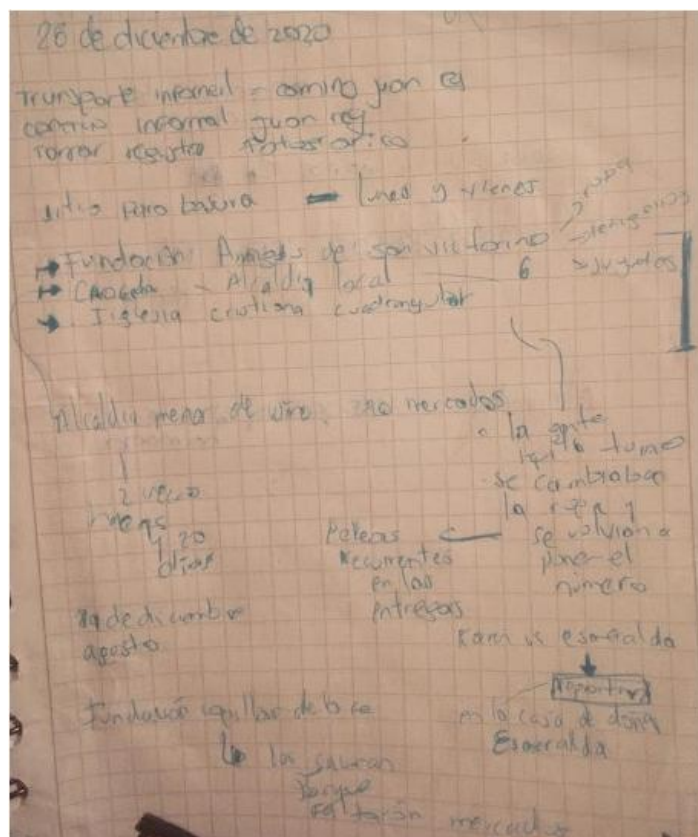 28 de diciembre de 2020
Transporte informal - camino juan
informal juan rey
Tomar registro fotografico
sitio para basura - lunes y viernes
→ Fundación Amigos de san victorino
→ ropa
→ juguetes
→ - Alcaldia local 6
→ Iglesia cristiana cuadrangular
Alcaldia menor de 280 mercados
2
mens
y 20
dias
• la gente
turno
se cambiaba
la ropa y
se volvian a
poner el
número
Peleas
recurrentes
en las
entregas
19 de diciembre
agosto
Karen vs esmeralda
Fundación de base
en la casa de doña
Esmeralda
la sacaron
Porque
faltaron mercados